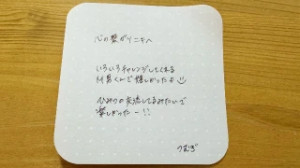 心の整がイニキへ
いろいろチャレンジしてくれる
付具くんで嬉しかったよ
ひみつの交流してるみたいで
楽しかったー!!
つむぎ